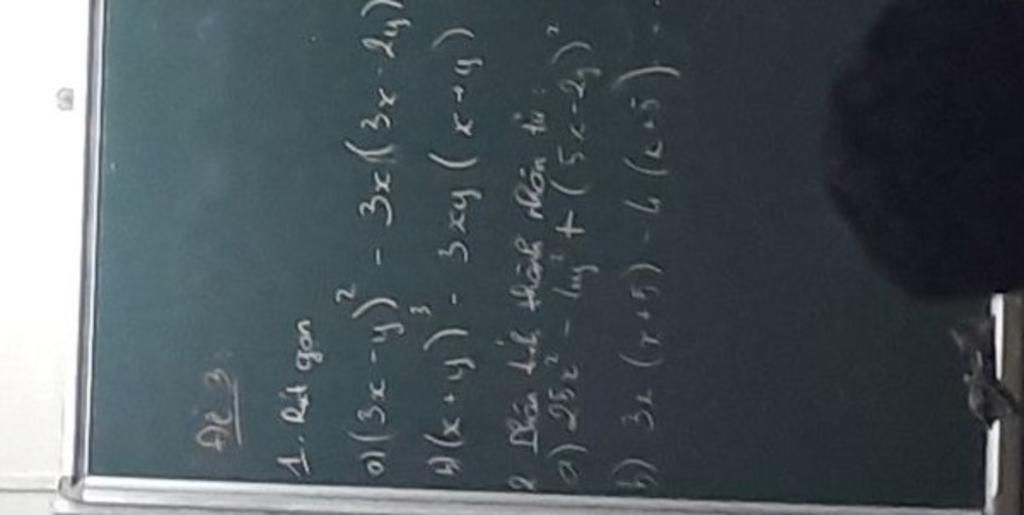 Đề 3:
1. Rút gọn
a) (3x - y)² - 3x(3x - 2y)
b) (x + y)³ - 3xy(x + y)
2 Phân tích thành nhân tử:
a) 25x² - 4y² + (5x - 2y)²
b) 3x(x + 5) - 4(x + 5)